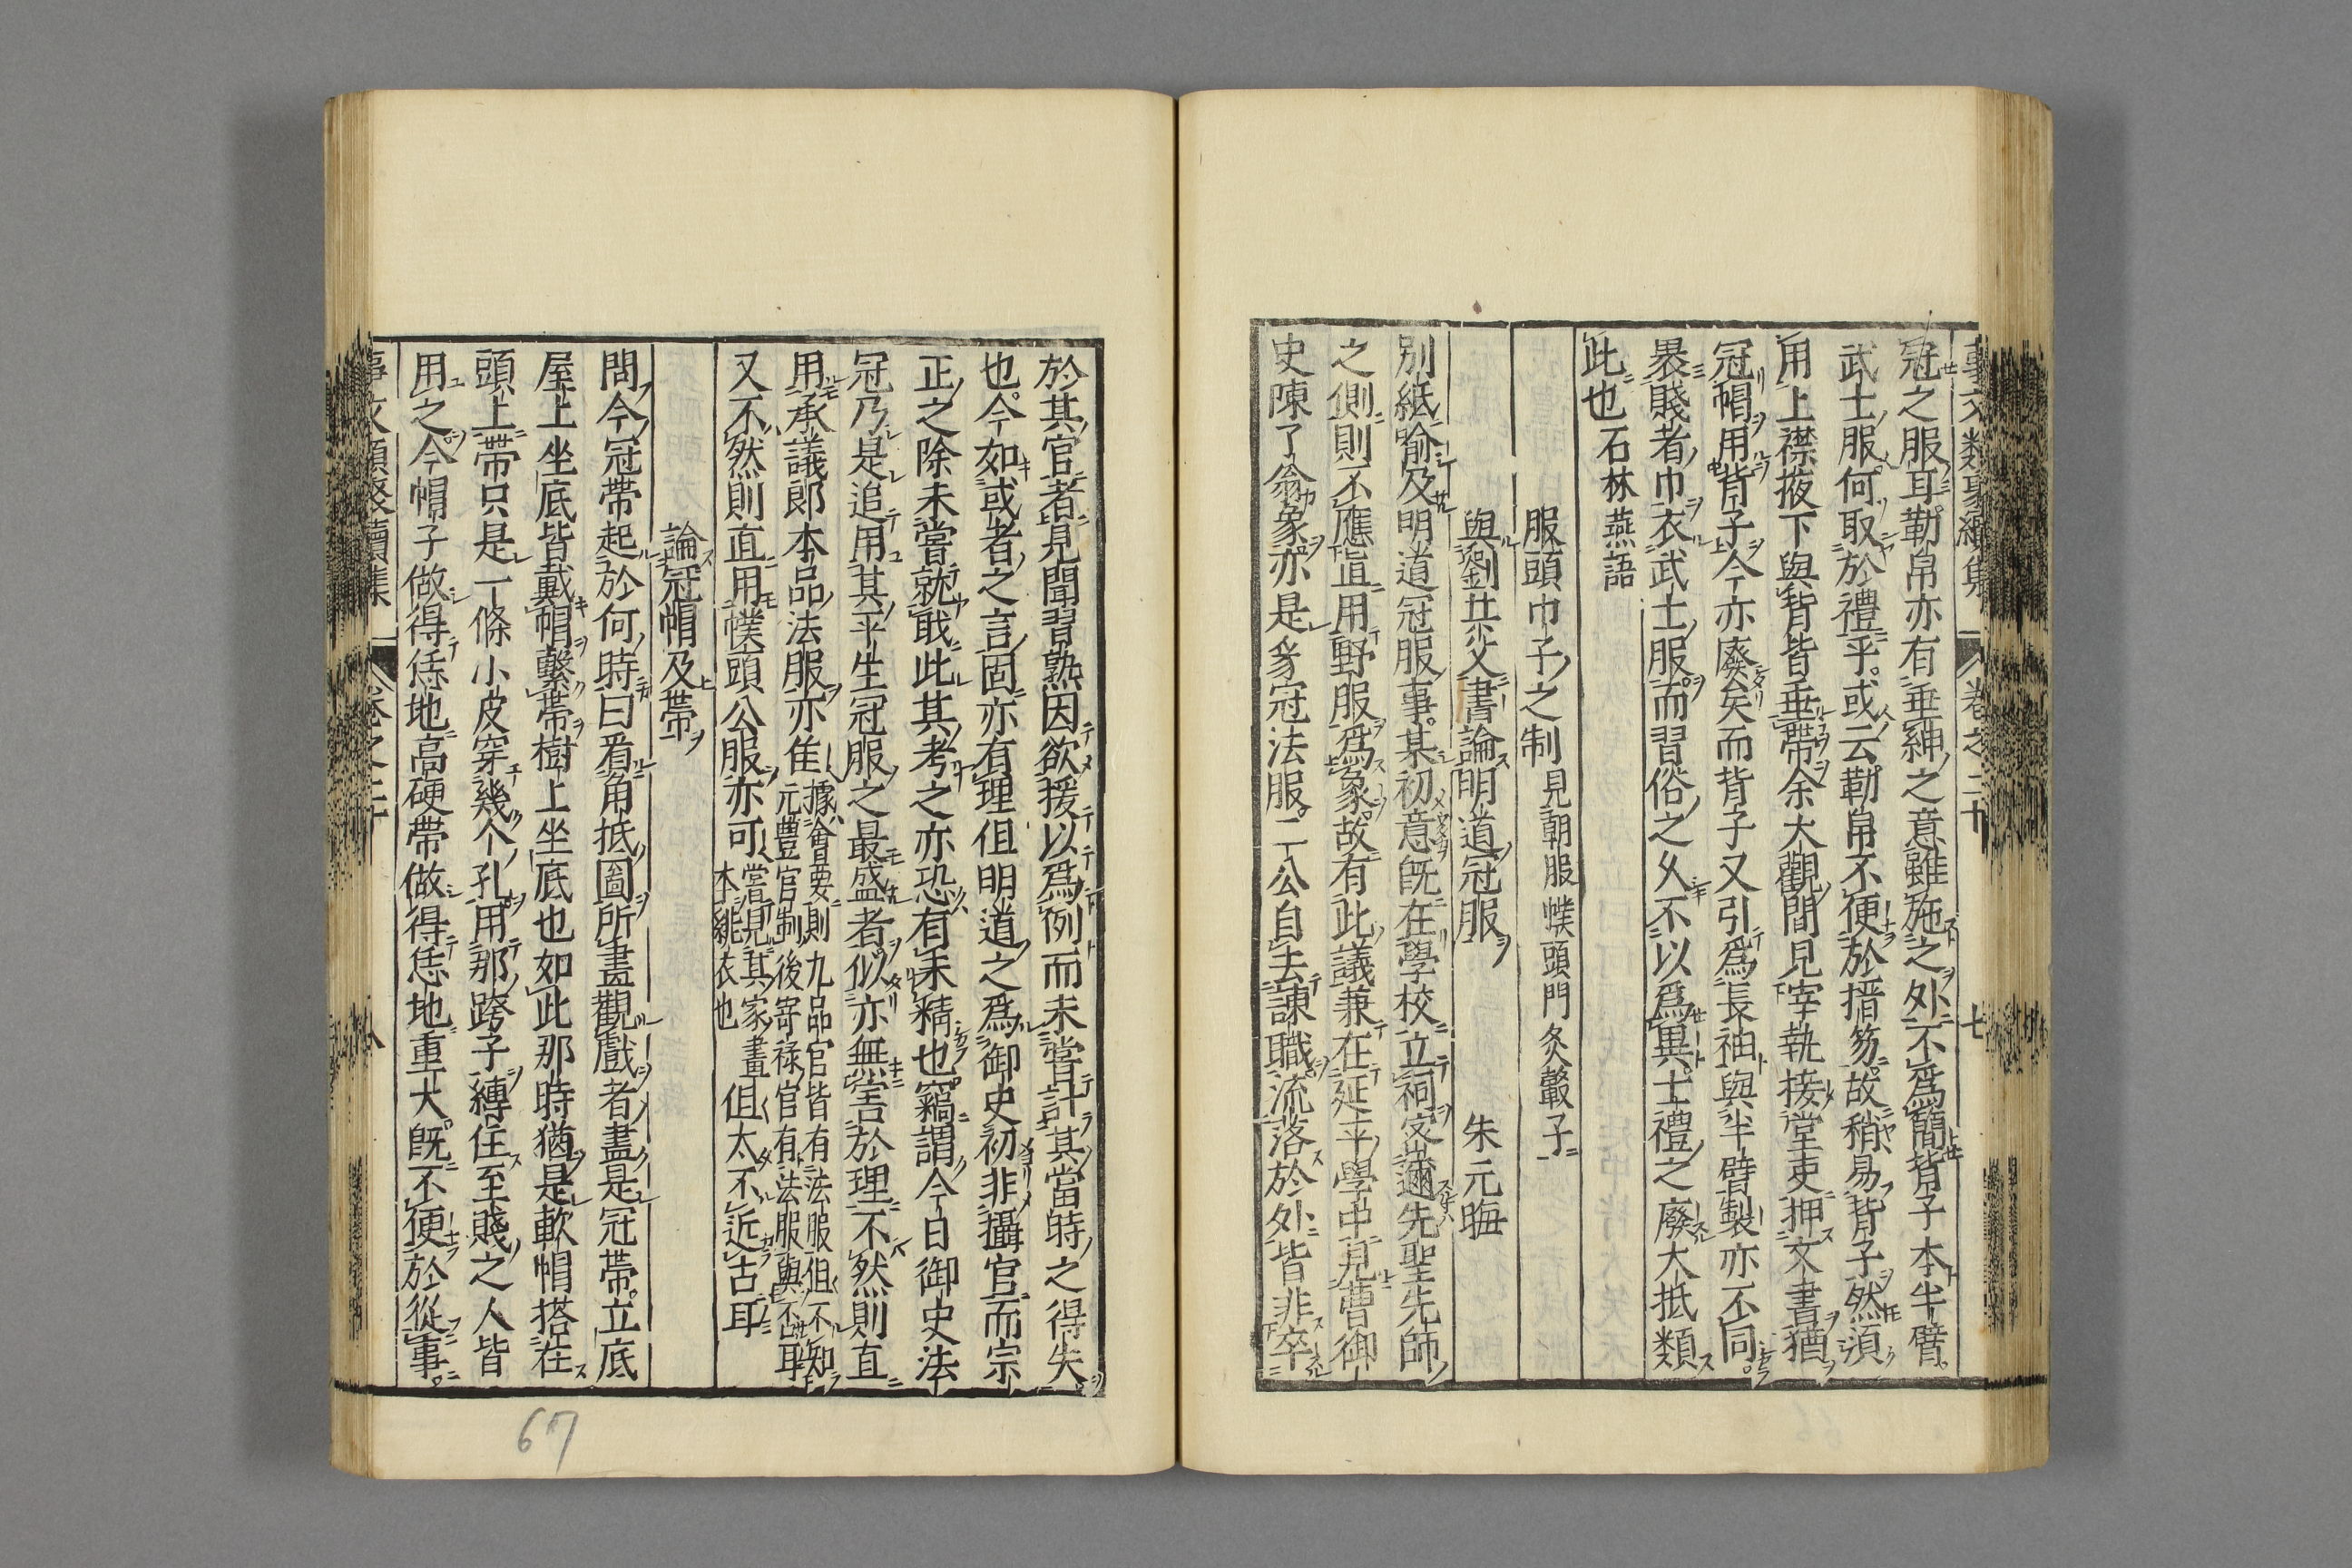 事文類聚續集 卷之二十 七
冠之服耳勒帛亦有垂紳之意雖施之外不爲簡背子本半臂
武士服何取於禮乎或云勒帛不便於搢笏故稍易背子然須
用上襟掖下與背皆垂帶余大觀間見宰執接堂吏押文書猶
冠帽用背子今亦廢矣而背子又引爲長袖與半臂製亦不同
褁賤者巾衣武士服而習俗之久不以爲異士禮之廢大抵類
此也石林燕語
服頭巾子之制見朝服幞頭門灸轂子
與劉共父書論明道冠服 朱元晦
別紙喻及明道冠服事某初意既在學校立祠密邇先聖先師
之側則不應直用野服爲象故有此議兼在延平學中見曹御
史陳了翁象亦是豸冠法服二公自去諫職流落於外皆非卒
於其官者見聞習熟因欲援以爲例而未嘗計其當時之得失
也今如或者之言固亦有理但明道之爲御史初非攝官而宗
正之除未嘗就職此其考之亦恐有未精也竊謂今日御史法
冠乃是追用其平生冠服之最盛者似亦無害於理不然則直
用承議郎本品法服亦佳據會要則九品官皆有法服但不知元豊官制後寄祿官有法服與否耳
又不然則直用幞頭公服亦可嘗見其家畫本緋衣也但太不近古耳
論冠帽及帶
問今冠帶起於何時曰看角抵圖所畫觀戲者盡是冠帶立底
屋上坐底皆戴帽繫帶樹上坐底也如此那時猶是軟帽搭在
頭上帶只是一條小皮穿幾个孔用那跨子縛住至賤之人皆
用之今帽子做得恁地高硬帶做得恁地重大既不便於從事
事文類聚續集 卷之二十 八
67